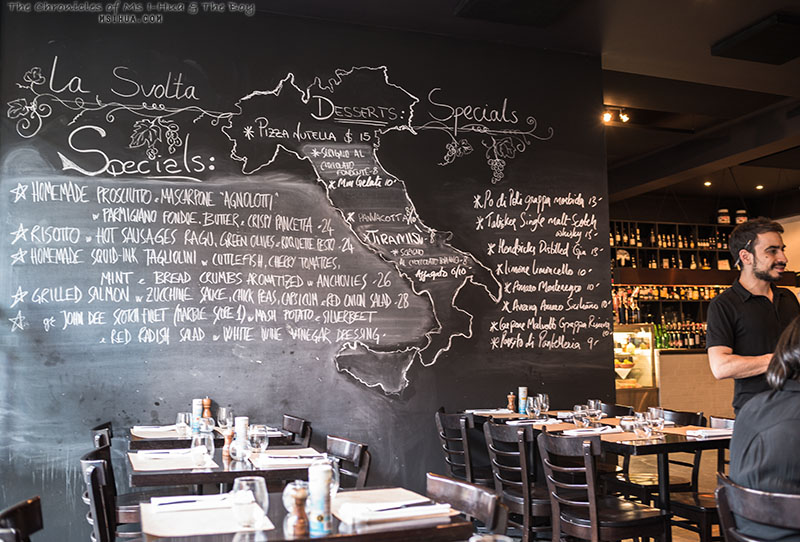 The Chronicles of Ms I-Hua & The Boy
MSIHUA.COM
La Svolta
Specials:
HOMEMADE PROSCIUTTO & MASCARPONE "AGNOLOTTI"
w PARMIGIANO FONDUE, BUTTER & CRISPY PANCETTA - 24
RISOTTO w HOT SAUSAGES RAGU, GREEN OLIVES & ROQUETTE PESTO - 24
HOMEMADE SQUID-INK TAGLIOLINI w CUTTLEFISH, CHERRY TOMATOES,
MINT & BREAD CRUMBS AROMATIZED w ANCHOVIES - 26
GRILLED SALMON w ZUCCHINE SAUCE, CHICK PEAS, CAPSICUM & RED ONION SALAD - 28
JOHN DEE SCOTCH FILLET (MARBLE SCORE 1) w MASH POTATO & SILVERBEET
& RED RADISH SALAD w WHITE WINE VINEGAR DRESSING
DESSERTS:
PIZZA NUTELLA $15
AL
CIOCCOLATO
FONDENTE - 8
MINI GELATI
PANNACOTTA
TIRAMISÙ 8
AL CIOCCOLATO BIANCO - 8
Affogato 6/10
Specials
Po di Poli grappa morbida 13-
Talisker Single malt Scotch
whisky
Hendricks Distilled Gin
limone limoncello 10
Amaro Montenegro
Amaro Siciliano
Grappa
Passito di Pantelleria 9-